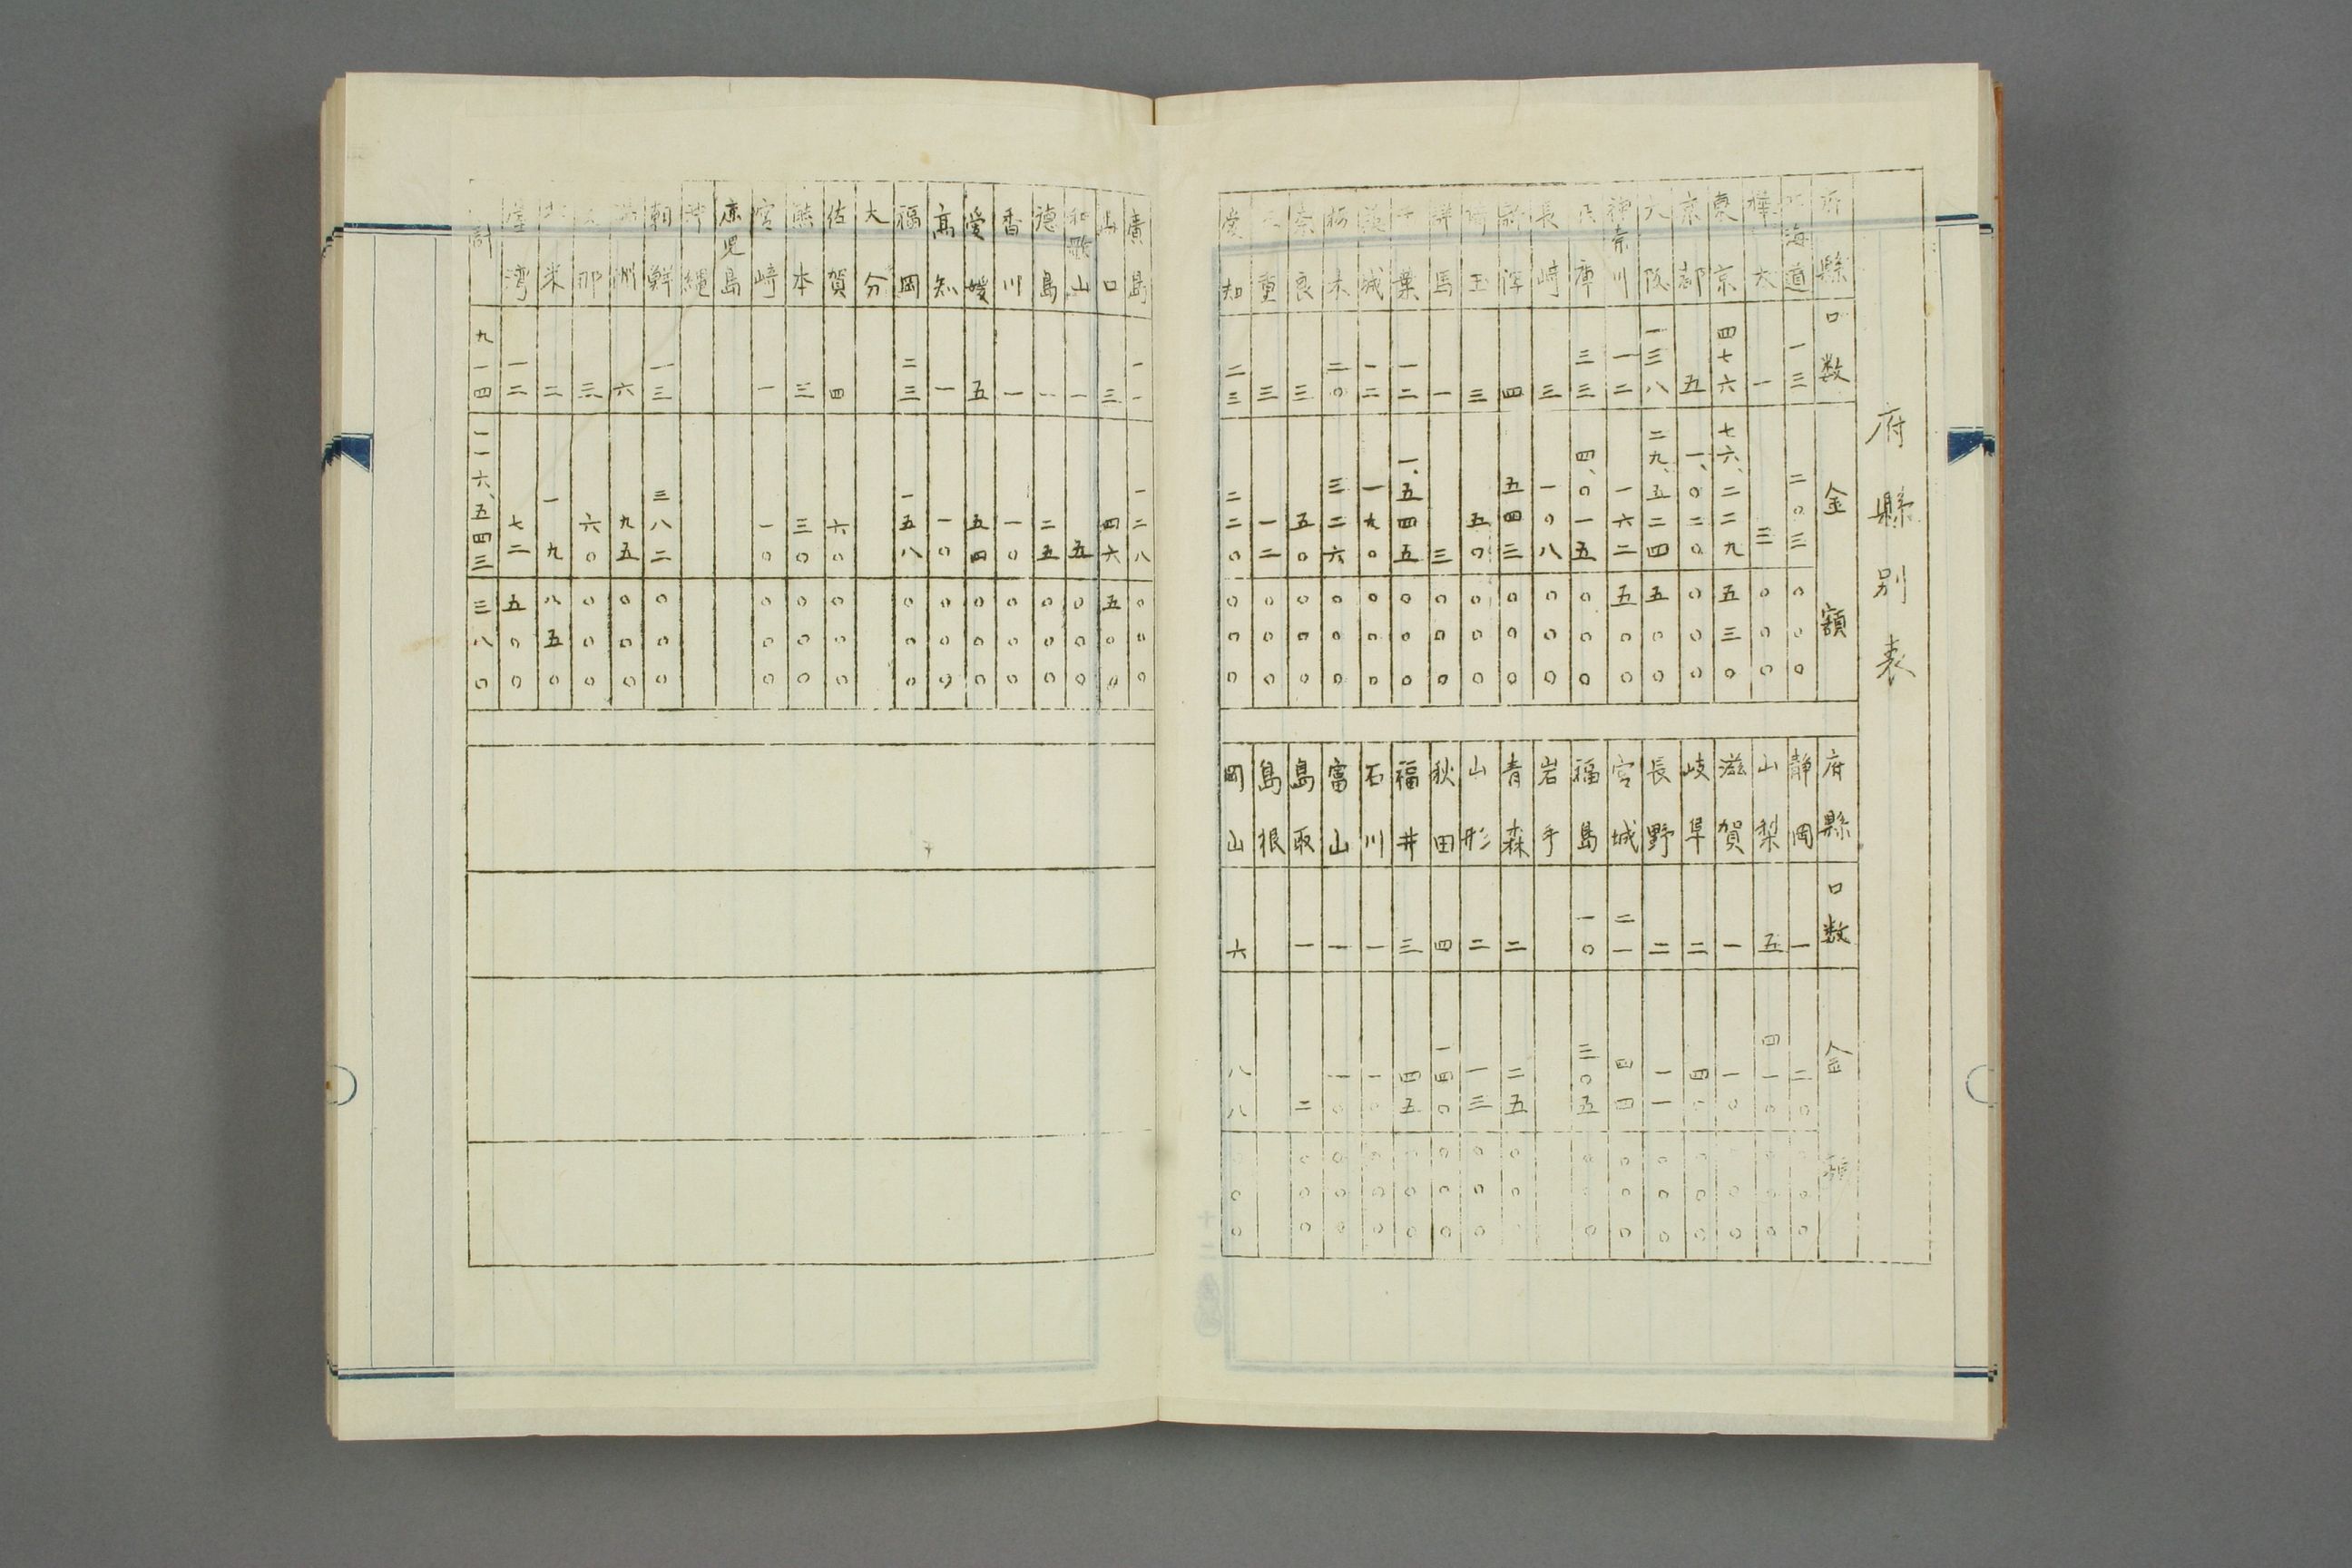 府縣別表
府縣 口数 金額
北海道 一三 二〇三 〇〇〇
樺太 一 三 〇〇〇
東京 四七六 七六、二二九 五三〇
京都 五 一、〇二〇 〇〇〇
大阪 一三八 二九、五二四 五〇〇
神奈川 一二 一六二 五〇〇
兵庫 三三 四、〇一五 〇〇〇
長崎 三 一〇八 〇〇〇
新潟 四 五四三 〇〇〇
埼玉 三 五〇 〇〇〇
群馬 一 三 〇〇〇
千葉 一二 一、五四五 〇〇〇
茨城 一二 一九〇 〇〇〇
栃木 二〇 三二六 〇〇〇
奈良 三 五〇 〇〇〇
三重 三 一二 〇〇〇
愛知 二三 二二〇 〇〇〇
府縣 口数 金額
静岡 一 二〇 〇〇
山梨 五 四一〇 〇〇
滋賀 一 一〇 〇〇
岐阜 二 四〇 〇〇〇
長野 二 一一 〇〇〇
宮城 二一 四四 〇〇〇
福島 一〇 三〇五 〇〇
岩手
青森 二 二五 〇〇
山形 二 一三 〇〇〇
秋田 四 一四〇 〇〇〇
福井 三 四五 〇〇〇
石川 一 一〇 〇〇〇
富山 一 一〇 〇〇〇
島取 一 二 〇〇〇
島根
岡山 六 八八 〇〇
廣島 一一 一二八 〇〇〇
山口 三 四六 五〇〇
和歌山 一 五 〇〇〇
德島 一 二五 〇〇〇
香川 一 一〇 〇〇〇
愛媛 五 五四 〇〇〇
高知 一 一〇 〇〇〇
福岡 二三 一五八 〇〇〇
大分
佐賀 四 六〇 〇〇〇
熊本 三 三〇 〇〇〇
宮崎 一 一〇 〇〇〇
鹿児島
沖繩
朝鮮 一三 三八二 〇〇〇
満洲 六 九五 〇〇〇
支那 三 六〇 〇〇〇
米 二 一九 八五〇
臺湾 一二 七二 五〇〇
計 九一四 一一六、五四三 三八〇